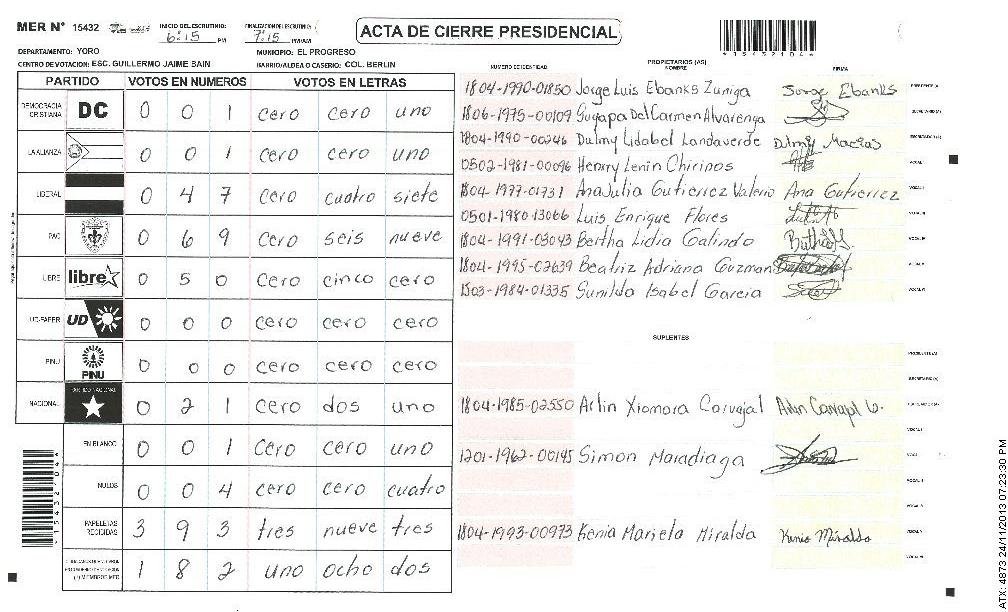 MER N° 15432
INICIO DEL ESCRUTINIO: 6:15 PM
FINALIZACION DEL ESCRUTINIO: 7:15 PM/AM
ACTA DE CIERRE PRESIDENCIAL
DEPARTAMENTO: YORO
MUNICIPIO: EL PROGRESO
CENTRO DE VOTACION: ESC. GUILLERMO JAIME BAIN
BARRIO/ALDEA O CASERIO: COL. BERLIN
PARTIDO VOTOS EN NUMEROS VOTOS EN LETRAS
DEMOCRACIA CRISTIANA DC 0 0 1 cero cero uno
LA ALIANZA 0 0 1 cero cero uno
LIBERAL 0 4 7 cero cuatro siete
PAC 0 6 9 cero seis nueve
LIBRE libre 0 5 0 cero cinco cero
UD-FAPER UD 0 0 0 cero cero cero
PINU PINU 0 0 0 cero cero cero
NACIONAL PARTIDO NACIONAL 0 2 1 cero dos uno
EN BLANCO 0 0 1 cero cero uno
NULOS 0 0 4 cero cero cuatro
PAPELETAS RECIBIDAS 3 9 3 tres nueve tres
(+) MIEMBROS MER 1 8 2 uno ocho dos
NUMERO DE IDENTIDAD PROPIETARIOS (AS) NOMBRE FIRMA
1804-1990-01850 Jorge Luis Ebanks Zuniga Jorge Ebanks PRESIDENTE (A)
1806-1975-00109 Suyapa Del Carmen Alvarenga SECRETARIO (A)
1804-1990-00246 Dulmy Lidabel Landaverde Dulmy Macias
0502-1981-00096 Henrry Lenin Chirinos
1804-1977-01731 Ana Julia Gutierrez Valerio Ana Gutierrez
0501-1980-13066 Luis Enrique Flores
1804-1991-03043 Bertha Lidia Galindo
1804-1995-02639 Beatriz Adriana Guzman
1503-1984-01335 Sunilda Isabel Garcia
SUPLENTES
PRESIDENTE (A)
SECRETARIO (A)
1804-1985-02550 Arlin Xiomora Carvajal
1201-1962-00145 Simon Maradiaga
1804-1993-00973 Kenia Mariela Miralda Kenia Miralda
*154321041*
ATX: 4873 24/11/2013 07:23:30 PM